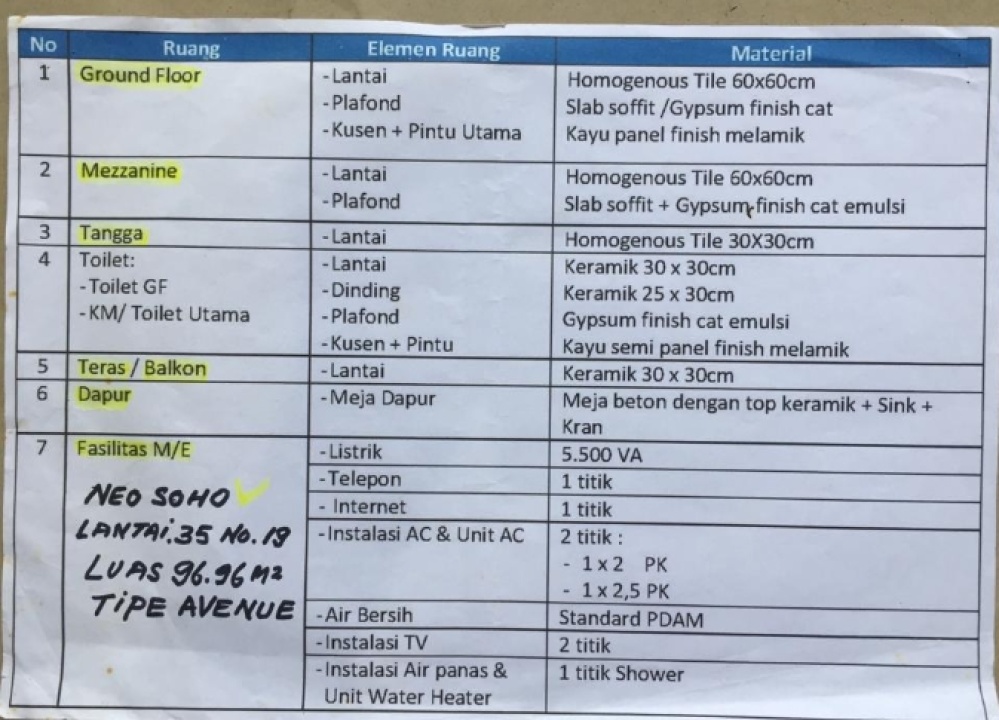 No Ruang Elemen Ruang Material
1 Ground Floor -Lantai Homogenous Tile 60x60cm
-Plafond Slab soffit /Gypsum finish cat
-Kusen + Pintu Utama Kayu panel finish melamik
2 Mezzanine -Lantai Homogenous Tile 60x60cm
-Plafond Slab soffit + Gypsum finish cat emulsi
3 Tangga -Lantai Homogenous Tile 30X30cm
4 Toilet: -Lantai Keramik 30 x 30cm
-Toilet GF -Dinding Keramik 25 x 30cm
-KM/ Toilet Utama -Plafond Gypsum finish cat emulsi
-Kusen + Pintu Kayu semi panel finish melamik
5 Teras / Balkon -Lantai Keramik 30 x 30cm
6 Dapur -Meja Dapur Meja beton dengan top keramik + Sink +
Kran
7 Fasilitas M/E -Listrik 5.500 VA
-Telepon 1 titik
- Internet 1 titik
-Instalasi AC & Unit AC 2 titik :
- 1 x 2 PK
- 1 x 2,5 PK
-Air Bersih Standard PDAM
-Instalasi TV 2 titik
-Instalasi Air panas & 1 titik Shower
Unit Water Heater
NEO SOHO
LANTAI.35 No.19
LUAS 96.96 M2
TIPE AVENUE